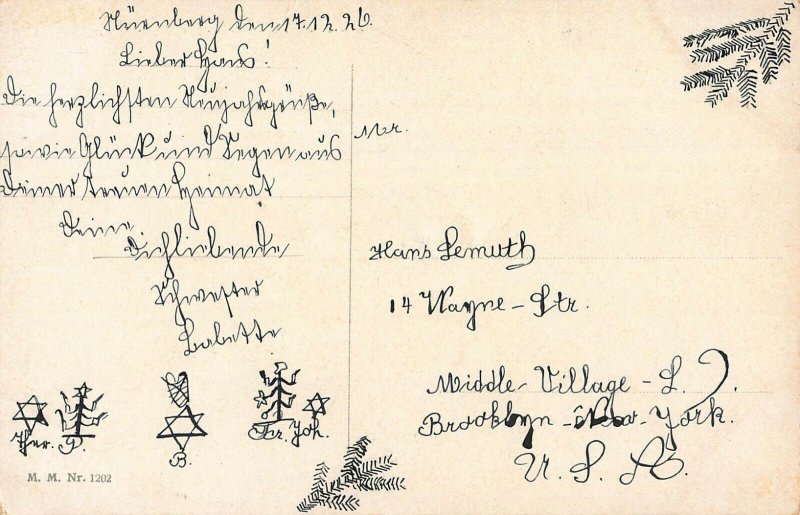 Nürnberg den 17.12.26.
Lieber Hans!
Die herzlichsten Neujahrsgrüße,
sowie Glück und Segen aus
Deiner trauen Heimat
Deine
Dichliebende
Schwester
Babette
Ther. P.
B.
Fr. Joh.
M. M. Nr. 1202
Mer.
Hans Lemuth
14 Wayne-Str.
Middle-Village-L. I.
Brooklyn-New-York.
U. S. A.